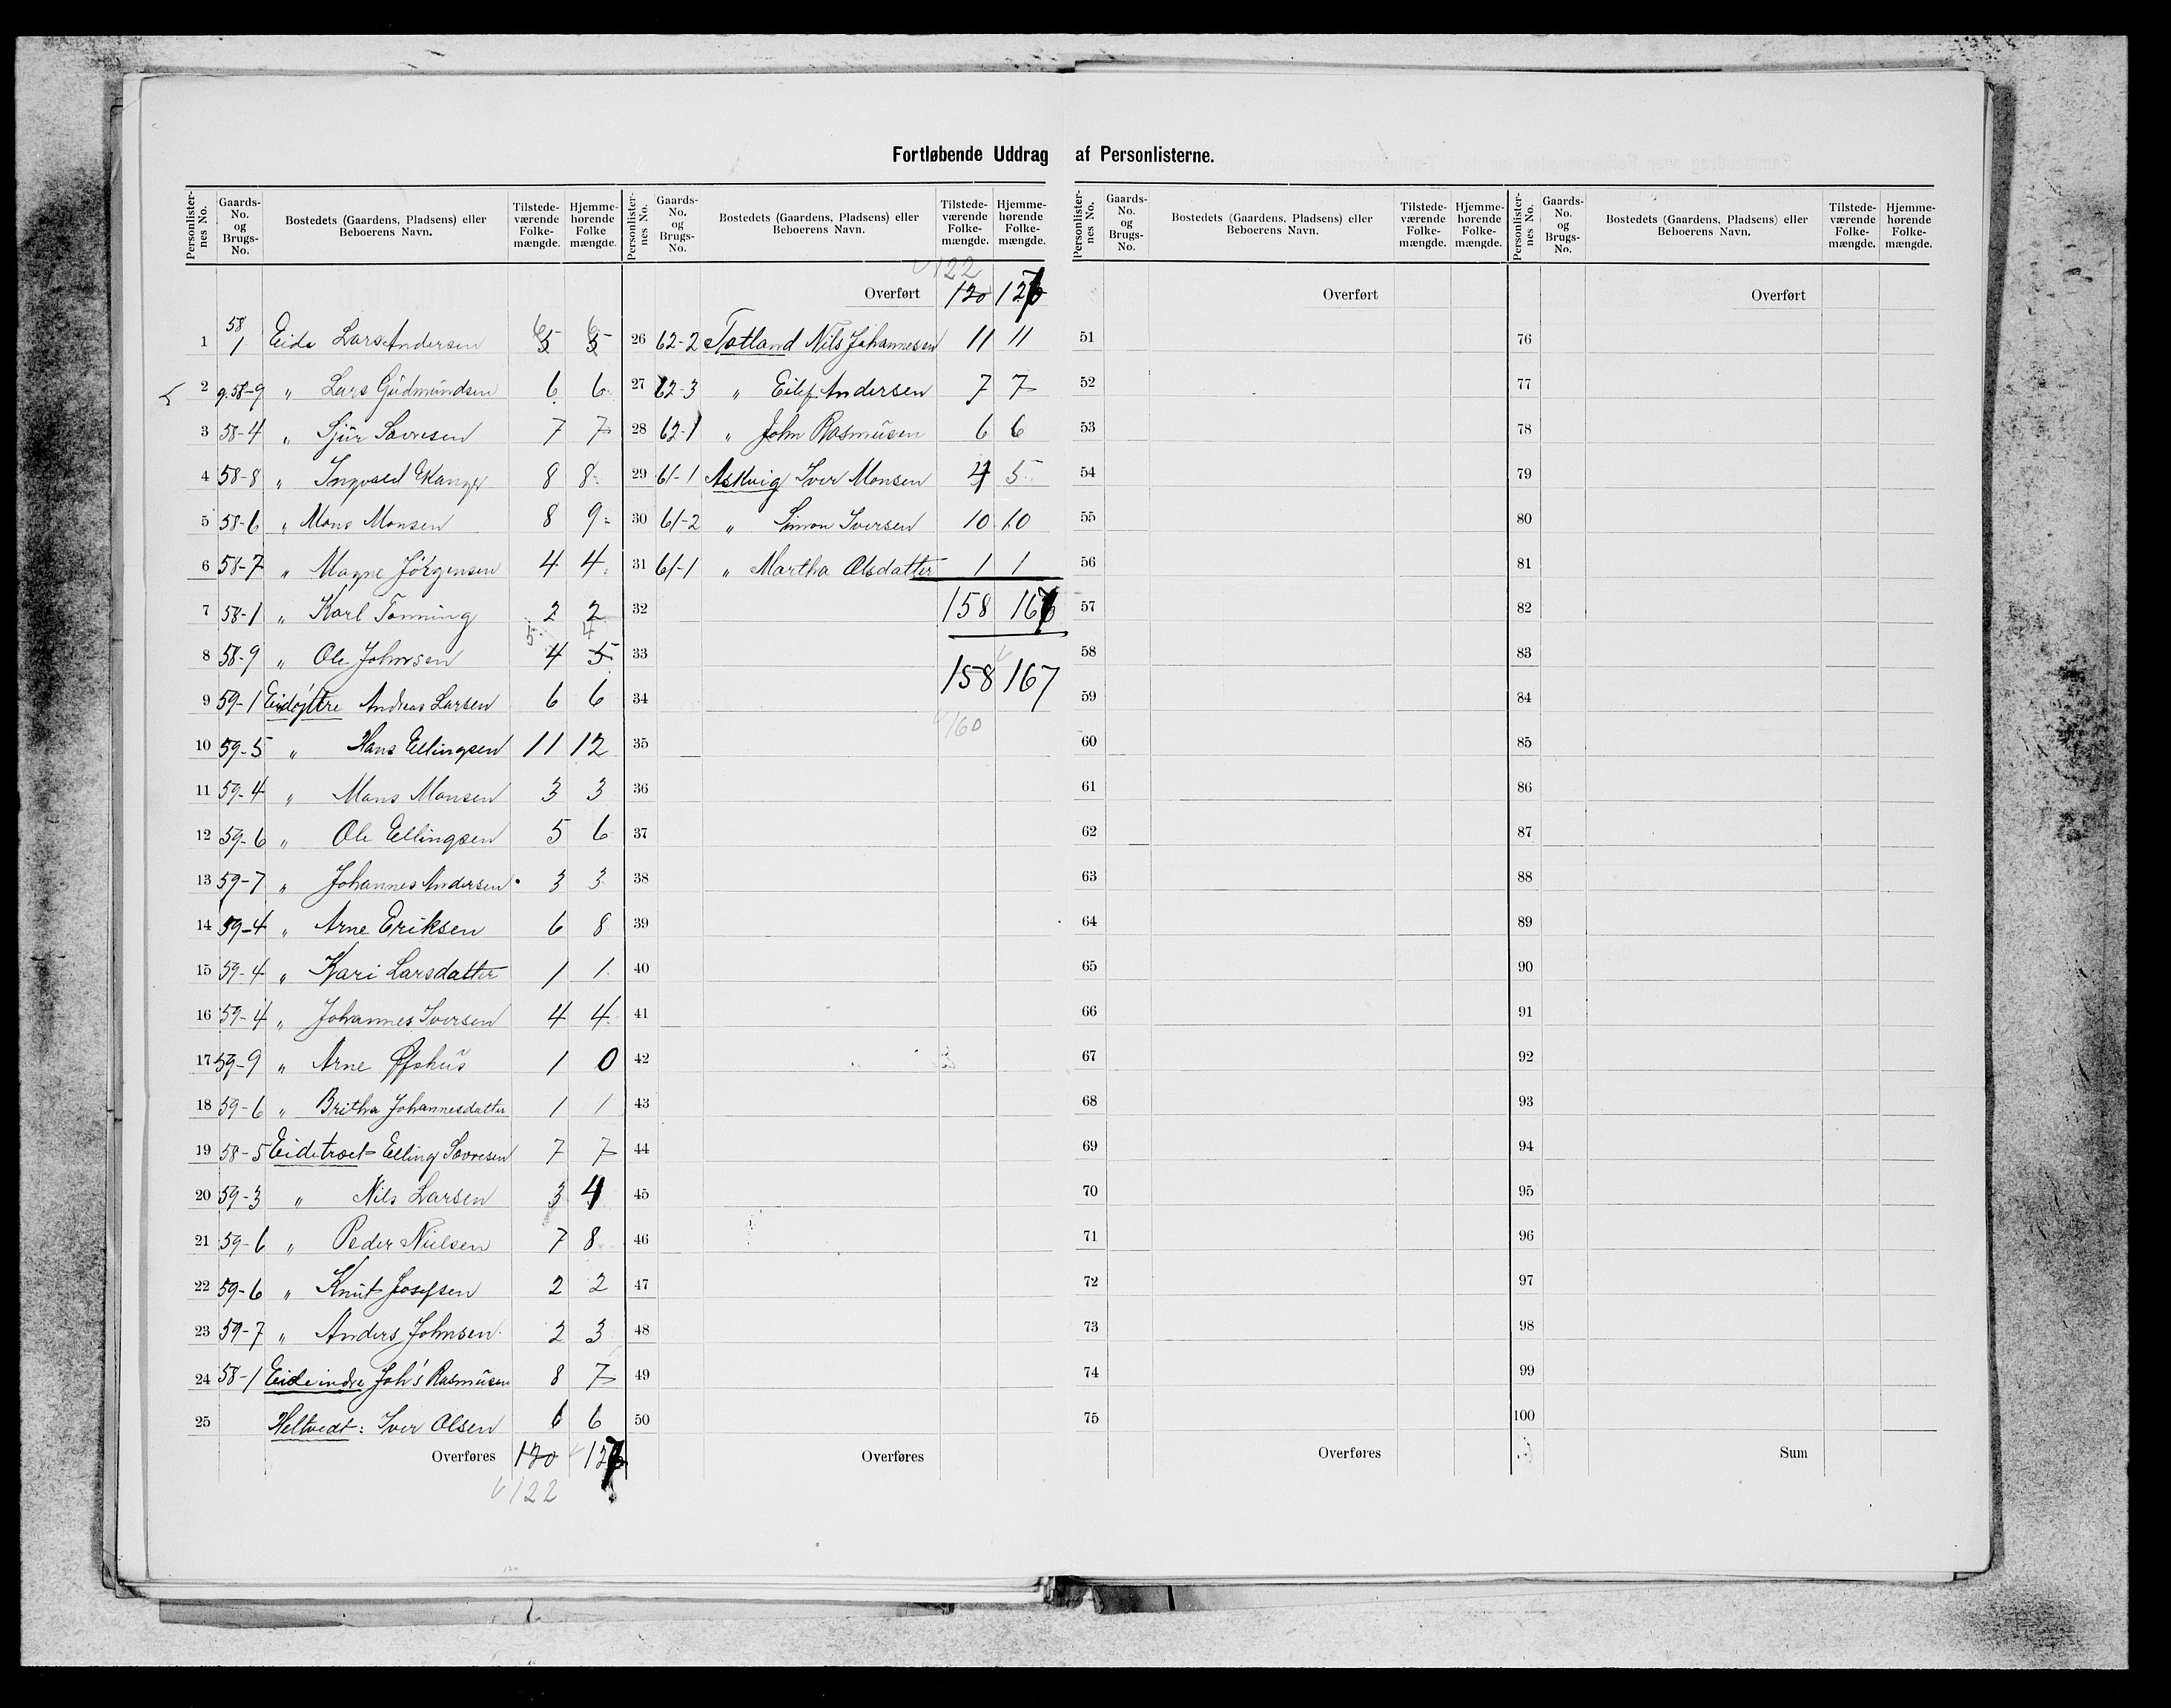 Fortløbende Uddrag af Personlisterne.
Personlister-nes No. Gaards-No. og Brugs-No. Bostedets (Gaardens, Pladsens) eller Beboerens Navn. Tilstede-værende Folke-mængde. Hjemme-hørende Folke mængde.
1 58 1 Eide Lars Andersen 5 5
2 g.58-9 " Lars Gudmundsen 6 6
3 58-4 " Sjür Sævresen 7 7
4 58-8 " Ingvald Ekanger 8 8
5 58-6 " Mons Monsen 8 9
6 58-7 " Magne Jörgensen 4 4
7 58-1 " Karl Tonning 2 2
5 4
8 58-9 " Ole Johnsen 4 5
9 59-1 Eidöjttre Andreas Larsen 6 6
10 59-5 " Hans Ellingsen 11 12
11 59-4 " Mons Monsen 3 3
12 59-6 " Ole Ellingsen 5 6
13 59-7 " Johannes Andersen 3 3
14 59-4 " Arne Eriksen 6 8
15 59-4 " Kari Larsdatter 1 1
16 59-4 " Johannes Iversen 4 4
17 59-9 " Arne 1 0
18 59-6 " Britha Johannesdatter 1 1
19 58-5 Eidetræt Elling Sævresen 7 7
20 59-3 " Nils Larsen 3 4
21 59-6 " Peder Nielsen 7 8
22 59-6 " Knüt Josefsen 2 2
23 59-7 " Anders Johnsen 2 3
24 58-1 Eide indre Joh's Rasmüsen 8 7
25 Heltvedt: Iver Olsen 6 6
Overføres 120 127
122
Personlister-nes No. Gaards-No. og Brugs-No. Bostedets (Gaardens, Pladsens) eller Beboerens Navn. Tilstede-værende Folke-mængde. Hjemme-hørende Folke-mængde.
122
Overført 120 127
26 62-2 Totland Nils Johannesen 11 11
27 62-3 " Eilef Andersen 7 7
28 62-1 " John Rasmüsen 6 6
29 61-1 Askvig Iver Monsen 4 5
30 61-2 " Simon Iversen 10 10
31 61-1 " Martha Olsdatter 1 1
32 158 167
33
158 167
34
160
35
36
37
38
39
40
41
42
43
44
45
46
47
48
49
50
Overføres
Personlister-nes No. Gaards-No. og Brugs-No. Bostedets (Gaardens, Pladsens) eller Beboerens Navn. Tilstede-værende Folke-mængde. Hjemme-hørende Folke-mængde.
Overført
51
52
53
54
55
56
57
58
59
60
61
62
63
64
65
66
67
68
69
70
71
72
73
74
75
Overføres
Personlister-nes No. Gaards-No. og Brugs-No. Bostedets (Gaardens, Pladsens) eller Beboerens Navn. Tilstede-værende Folke-mængde. Hjemme-hørende Folke-mængde.
Overført
76
77
78
79
80
81
82
83
84
85
86
87
88
89
90
91
92
93
94
95
96
97
98
99
100
Sum